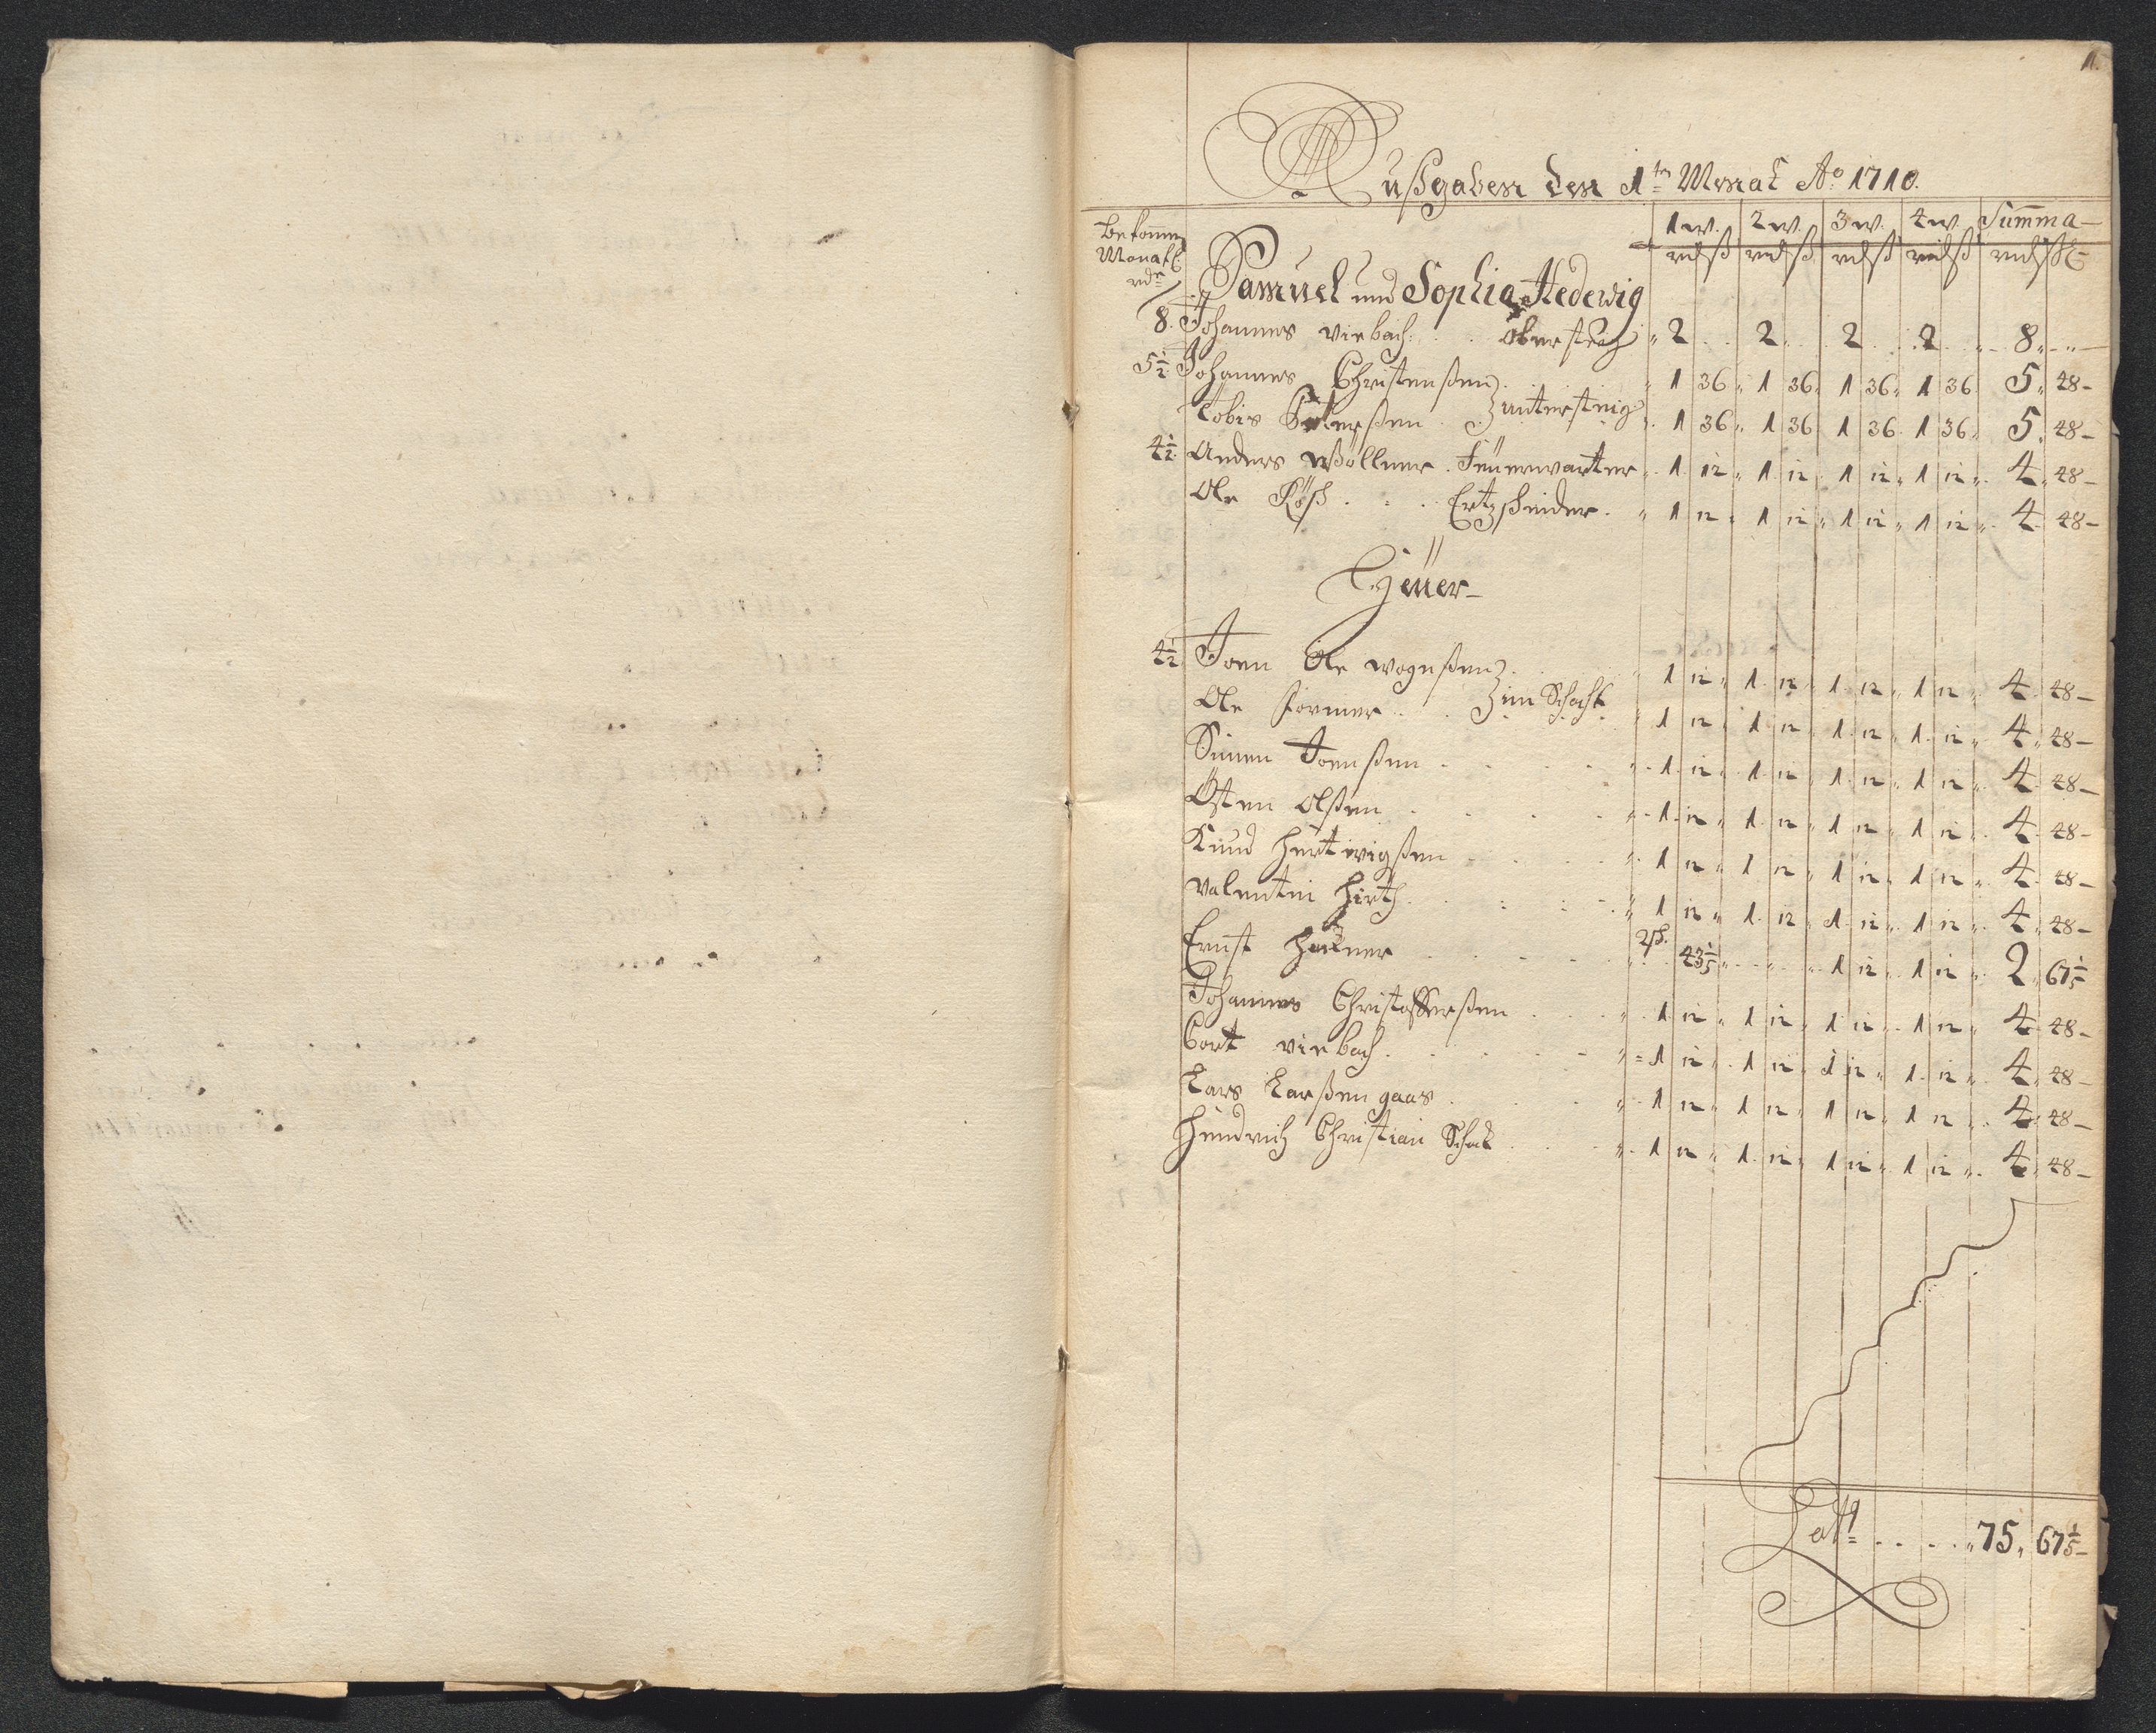 1.
Außgaben den 1ten Monat Ao 1710.
Bekomen Monatl: rdr
1 w. 2 w. 3 w. 4 w. Summa
rd ß rd ß rd ß rd ß rd ß
Samuel und Sophia Hedewig
8. Johannes Virbach . . Obersteig " 2 . . 2 . . 2 . . 2 . " 8 " - " -
5½ Johannes Christenßen . " 1 36 " 1 36 " 1 36 " 1 36 5 " 48 -
Tobis . . untersteig " 1 36 " 1 36 1 36 1 36 " 5 " 48 -
4½ Anders Wöllner . Feüerwarter " 1 12 " 1 12 " 1 12 " 1 12 " 4 " 48 -
Ole Röß . . . Ertzscheider . " 1 12 " 1 12 " 1 12 " 1 12 " 4 48 -
Heüer
4½ Joen Ole . " 1 12 " 1 12 " 1 12 " 1 12 " 4 48 -
Ole . . im Schacht " 1 12 " 1 12 " 1 12 " 1 12 " 4 " 48 -
Simen Joenßen . . . . " 1 12 " 1 12 " 1 12 " 1 12 " 4 48 -
Östen Olßen . . . . " 1 12 " 1 12 " 1 12 " 1 12 " 4 48 -
Knud Hertwigßen . . . " 1 12 " 1 12 " 1 12 " 1 12 " 4 48 -
Valentin Hirth . . . . " 1 12 " 1 12 " 1 12 " 1 12 " 4 " 48 -
Ernst . . . . 2 sch. " 43⅕ " - " - " 1 12 " 1 12 " 2 " 67⅕
Johannes Christofferßen . . . " 1 12 " 1 12 " 1 12 " 1 12 " 4 48 -
Cort Virbach . . . . " 1 12 " 1 12 " 1 12 " 1 12 " 4 " 48 -
Lars Larßen gaas . . . " 1 12 " 1 12 " 1 12 " 1 12 " 4 " 48 -
Hendrich Christian Schack . . " 1 12 " 1 12 " 1 12 " 1 12 " 4 " 48 -
Latt . . . . " 75 " 67⅕ -